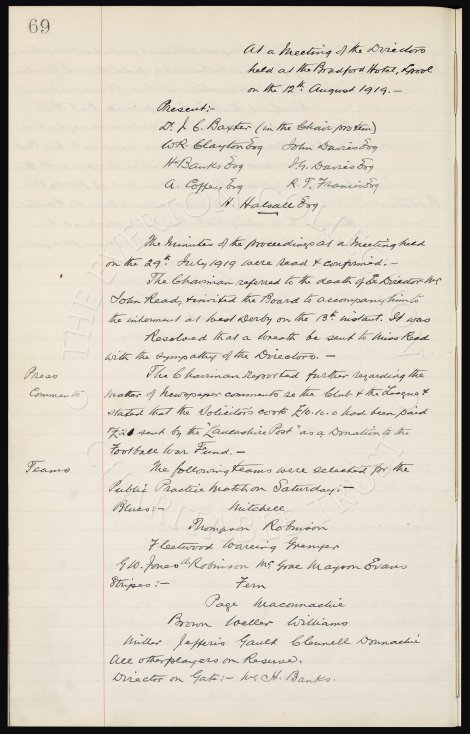 69
At a Meeting of the Directors
held at the Bradford Hotel, L'pool
on the 12th August 1919.—
Present:-
Dr J. C. Baxter (in the Chair protem)
W.R. Clayton Esq John Davies Esq
H Banks Esq J.G. Davies Esq
A. Coffey Esq R. T. Francis Esq
H. Halsall Esq
The Minutes of the proceedings at a Meeting held
on the 29th July 1919 were read & confirmed.—
The Chairman referred to the death of Ex Director Mr
John Read, & invited the Board to accompany him to
the interment at West Derby on the 13th instant. It was
Resolved that a wreath be sent to Miss Read
with the sympathy of the Directors.—
Press The Chairman reported further regarding the
Comments matter of Newspaper comments re the Club & the League &
stated that the Solicitors costs £10.10.0 had been paid
sent by the "Lancashire Post" as a Donation to the
Football War Fund.—
Teams The following teams were selected for the
Public Practice Match on Saturday:-
Blues:- Mitchell
Thompson Robinson
Fleetwood Wareing Grenyer
G.W. Jones A Robinson McGrae Mayson Evans
Stripes:- Fern
Page Maconnachie
Brown Weller Williams
Miller Jefferis Gault Clennell Donnachie
All other players on Reserve.
Director on Gate:- Mr H. Banks.
THE EVERTON COLLECTION
CHARITABLE TRUST